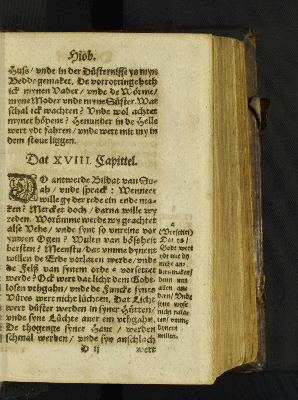 Hiob.
Huss / vnde in der Düsternisse ys myn
Bedde gemaket. De vorrottinge heth
ick mynen Vader / vnde de Wörme /
myne Moder vnde myne Süster. Wat
schal ick wachten? Vnde wol achtet
myner höpene? Henunder in de Helle
wert ydt fahren / vnde wert mit my in
dem stoue liggen.
Dat XVIII. Capittel.
DO antwerde Bildat van Su-
ah / vnde sprack: Wenneer
wille gy der rede ein ende ma-
ken? Mercket doch / darna wille wy
reden. Worümme werde wy geachtet
alse Vehe / vnde synt so vnreine vor
yuwen Ogen? Wultu van bösheit
bersten? Meenstu / dat vmme dynent
willen de Erde vorlaten werde / vnde
de Felß van synem orde a vorsettet
werde? Ock wert dat Licht der Godt-
losen vthgahn / vnde de Funcke synes
Vüres wert nicht lüchten. Dat Licht
wert düster werden in syner Hütten /
vnde syne Lüchte auer em vthgahn.
De thogenge syner Haue / werden
schmal werden / vnde syn anschlach
D ij wert
a
(Vorsettet)
Dat ys /
Godt wert
ydt mit dy
nicht an-
ders maken /
denn mit
allen an-
dern / Vnde
syne wyse
nicht nala-
ten / vmme
dynent
willen.